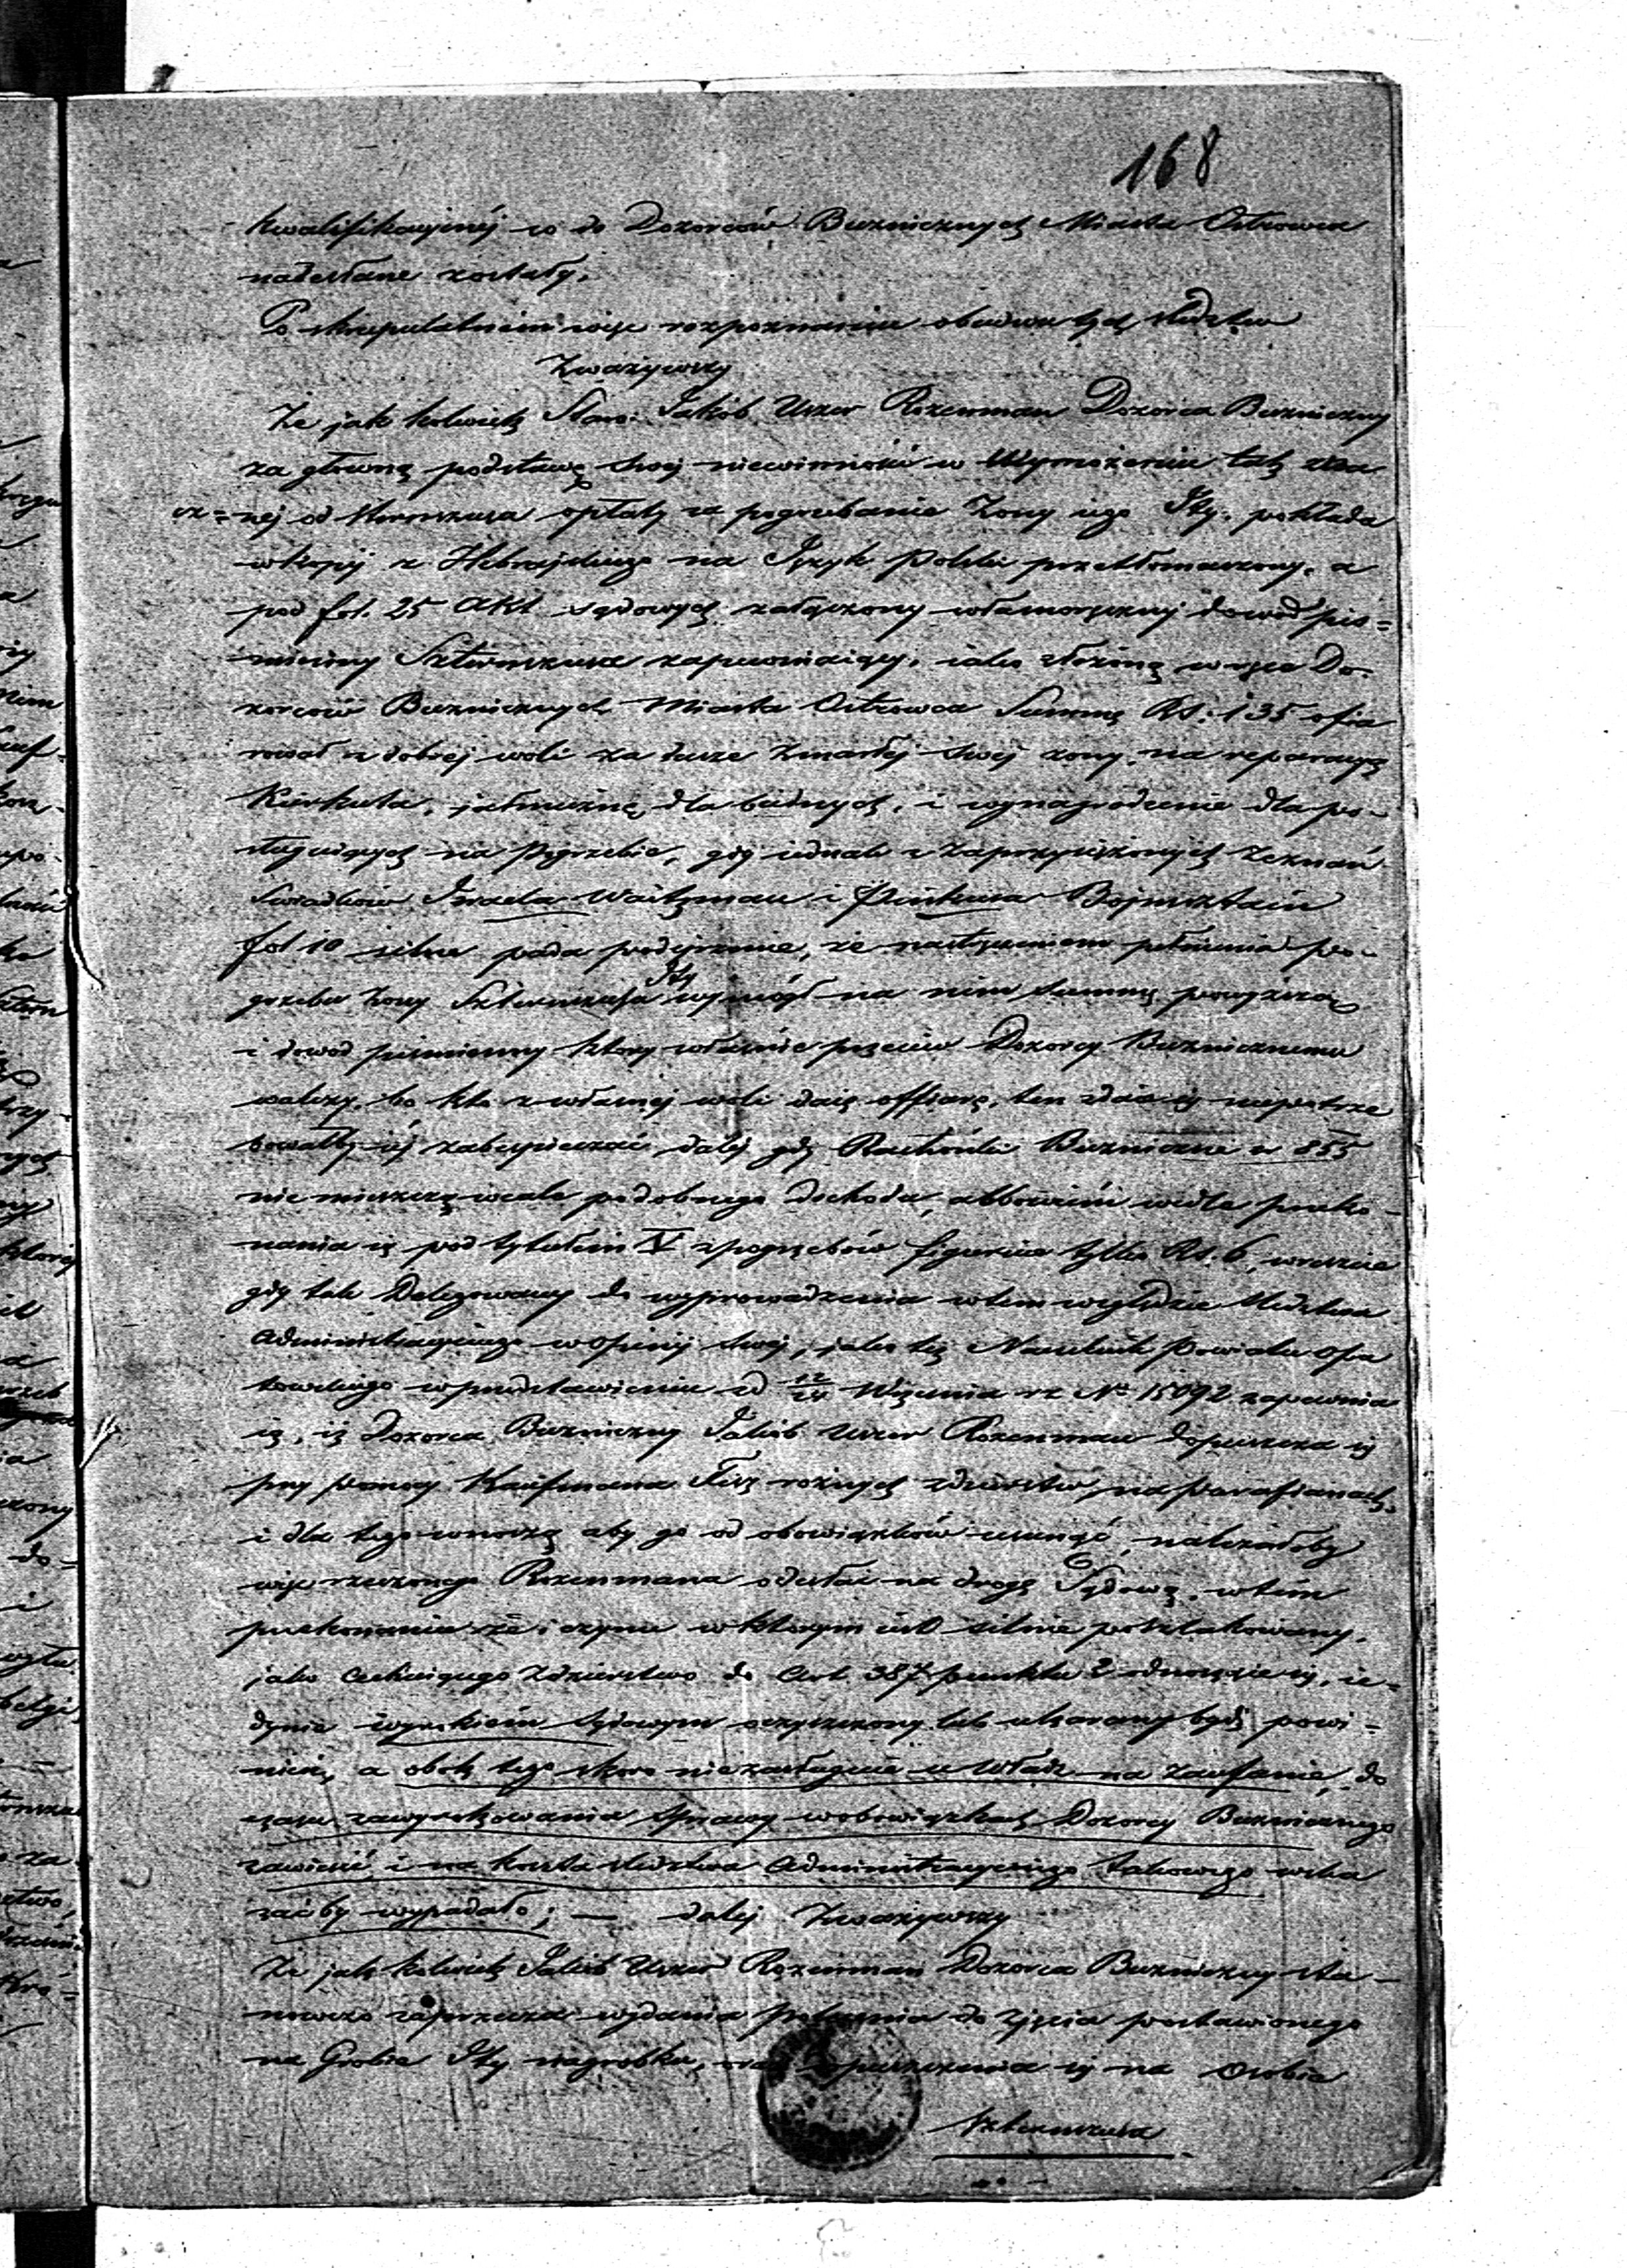 168
kwalifikacyinéj co do Dozorców Bużnicznych Miasta Ostrowca
nadesłane zostały.
Po skrupulatniem więc rozpoznaniu obudwu tych śledztw
Zważywszy
Że jak kolwiek Staro: Jakób Uszer Rozenman Dozorca Bużniczny
za główną podstawę swej niewinności w Wymożeniu
nej od opłaty za pogrzebanie Żony iego Ity, pokłada
w kopij z Hebrajskiego na Język Polski przetłomaczony, a
pod fol. 25 Akt sądowych załączony własnoręczny dowód piś=
mienny Szternszusa zapewniaiący, iako złożoną w ręce Do-
zorców Bużnicznych Miasta Ostrowca Summę Rs. 135 ofia
rował z dobrej woli za dusze zmarłej swej żony, na reparacyę
Kirkuta, jałmużnę dla biednych, i wynagrodzenie dla po-
sługuiących na pogrzebie, gdy iednak z zaprzysiężonych zeznań
Świadków Izraela Waitzman i Pinkusa Bojmsztain
fol 10 silne pada podejrzenie, że
Ity
grzebu żony Szternszusa wymógł na nim summę powyższą
i dowód piśmienny który właśnie przeciw Dozorcy Bużnicznemu
walczy, bo kto z własnej woli daie offiarę, ten zdaie się niepotrze
bowałby iéj zabezpieczać, dalej gdy Rachunki Bużniczne z 855
nie mieszczą wcale podobnego dochodu, albowiem wedle przeko-
nania się pod tytułem V z pogrzebów figuruie tylko Rs. 6, wreszcie
gdy tak Delegowany do wyprowadzenia w tem względzie śledztwa
Administracyinego w opinij swej, jako też Naczelnik Powiatu Opa
towskiego w przedstawieniu z d 12/24 Września rz Nº 15092 zapewnia
ią, iż Dozorca Bużniczny Jakób Uszer Rozenman dopuszcza się
przy pomocy Kaufmana różnych zdzierstw, na parafianach,
i dla tego wnoszą aby go od obowiązków usunąć, należałoby
więc rzeczonego Rozenmana odesłać na drogę Sądową, w tém
przekonaniu że i czynu w którym iest silnie poszlakowany,
jako cechuiącego zdzierstwo do Art. 387 punktu 2 odnoszące się, ie-
dynie wyrokiem Sądowym oczyszczony lub ukarany być powi-
nien, a obok tego skoro nie zasługuie u Władz na zaufanie, do
czasu zawyrokowania sprawy w obowiązkach Dozorcy Bużnicznego
zawiesić, i na koszta śledztwa Administracyinego takowego wska
zać by wypadało; — dalej Zważywszy
Że jak kolwiek Jakób Uszer Rozenman Dozorca Bużniczny sta-
nowczo zaprzecza wydania polecenia do zjęcia postawionego
na Grobie Ity nagrobku, oraz dopuszczenia się na osobie
Szternszusa